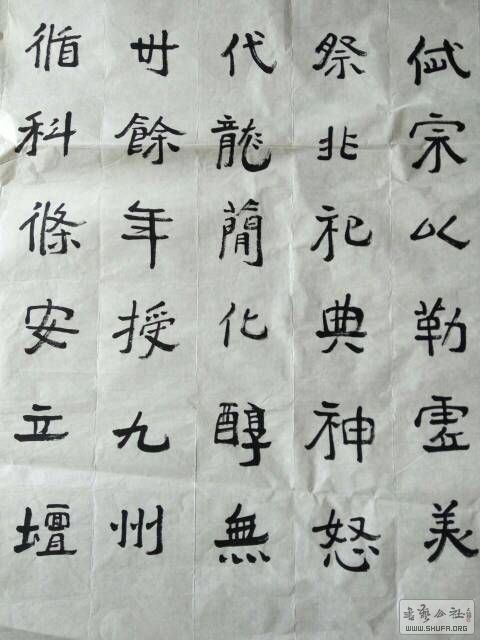 岱宗以勒虛美
祭非祀典神怒
代龍簡化醇無
卅餘年授九州
循科條安立壇
书艺公社
WWW.SHUFA.ORG